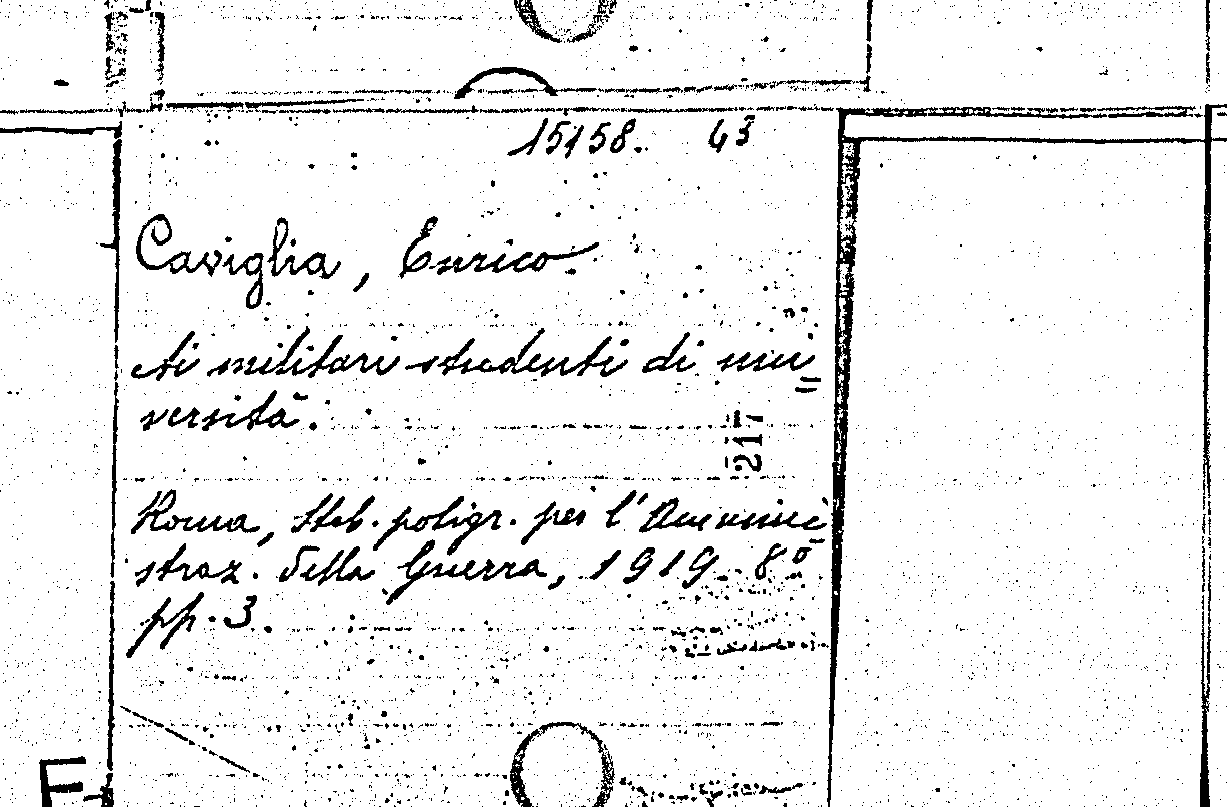 15158. 43
Caviglia, Enrico.
Ai militari studenti di uni=
versità.
217
Roma, Stab. poligr. per l'Ammini
straz. della Guerra, 1919 8°
pp. 3.
E